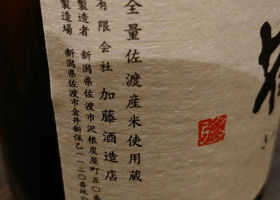 全量佐渡産米使用蔵
有限会社 加藤酒造店
製造者 新潟県佐渡市沢根炭屋町五〇番地
製造場 新潟県佐渡市金井新保乙一一二〇番地